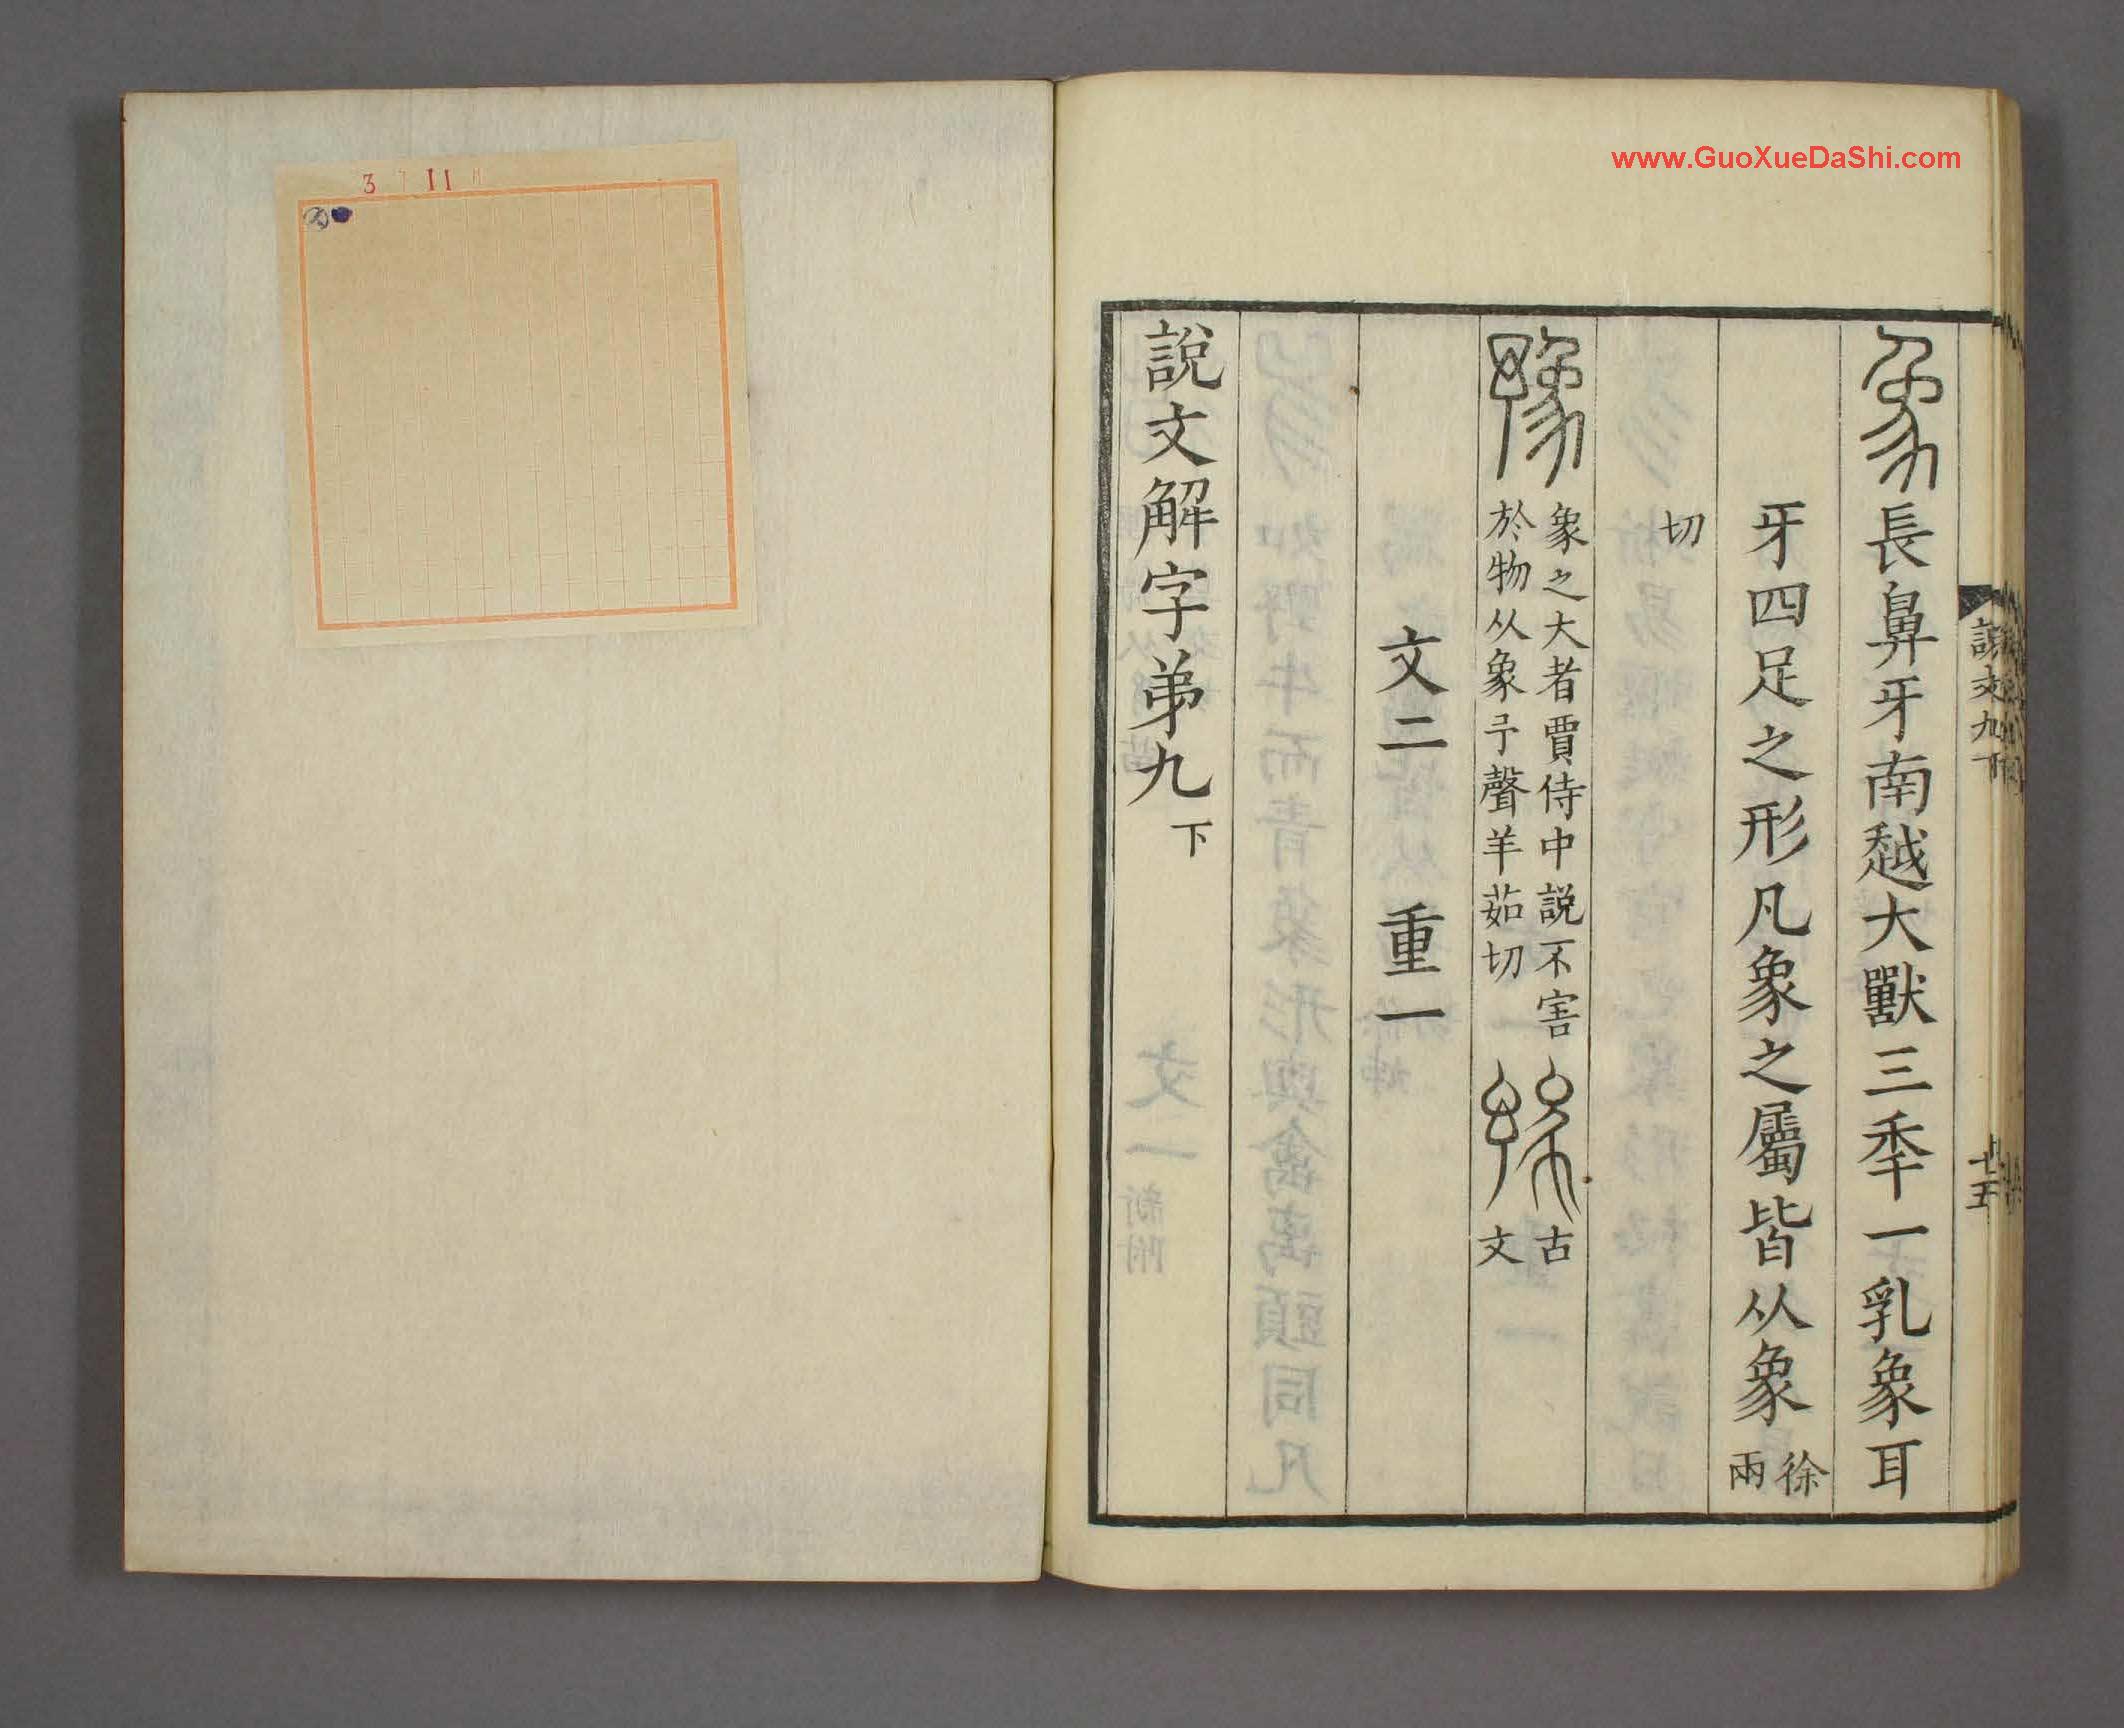 www.GuoXueDaShi.com
3 11
說文九下
十五
象長鼻牙南越大獸三秊一乳象耳
牙四足之形凡象之屬皆从象徐兩
切
豫象之大者賈侍中説不害
於物从象予聲羊茹切
古
文
文二 重一
說文解字弟九下